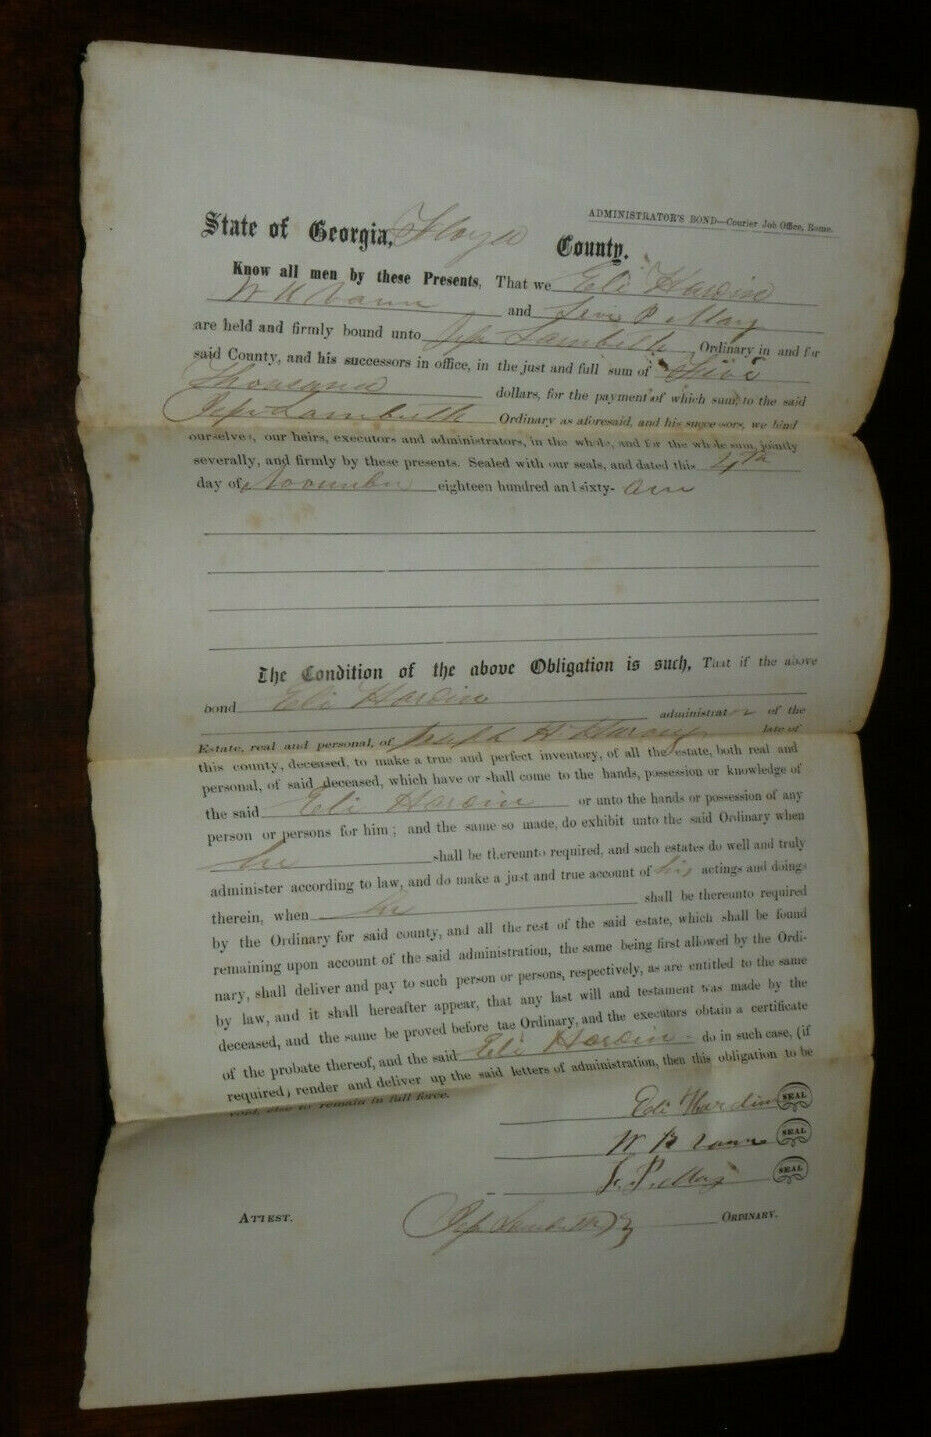 ADMINISTRATOR'S BOND—Courier Job Office, Rome.
State of Georgia, Floyd County.
Know all men by these Presents, That we Eli Hardin
and Levi P. May
are held and firmly bound unto Lambeth Ordinary in and for
said County, and his successors in office, in the just and full sum of Five
Thousand dollars, for the payment of which sum, to the said
Lambeth Ordinary as aforesaid, and his successors, we bind
ourselves, our heirs, executors and administrators, in the whole, and for the whole sum, jointly
severally, and firmly by these presents. Sealed with our seals, and dated this 4th
day of November eighteen hundred and sixty-
The Condition of the above Obligation is such, That if the above
bond Eli Hardin
administrator of the
Estate, real and personal, of Joseph H. late of
this county, deceased, to make a true and perfect inventory, of all the estate, both real and
personal, of said deceased, which have or shall come to the hands, possession or knowledge of
the said Eli Hardin or unto the hands or possession of any
person or persons for him; and the same so made, do exhibit unto the said Ordinary when
he shall be thereunto required, and such estates do well and truly
administer according to law, and do make a just and true account of his actings and doings
therein, when he shall be thereunto required
by the Ordinary for said county, and all the rest of the said estate, which shall be found
remaining upon account of the said administration, the same being first allowed by the Ordi-
nary, shall deliver and pay to such person or persons, respectively, as are entitled to the same
by law, and it shall hereafter appear, that any last will and testament was made by the
deceased, and the same be proved before tae Ordinary, and the executors obtain a certificate
of the probate thereof, and the said Eli Hardin do in such case, (if
required) render and deliver up the said letters of administration, then this obligation to be
void, else to remain in full force.
Eli Hardin SEAL
SEAL
L. P. May SEAL
ATTEST. Lambeth ORDINARY.